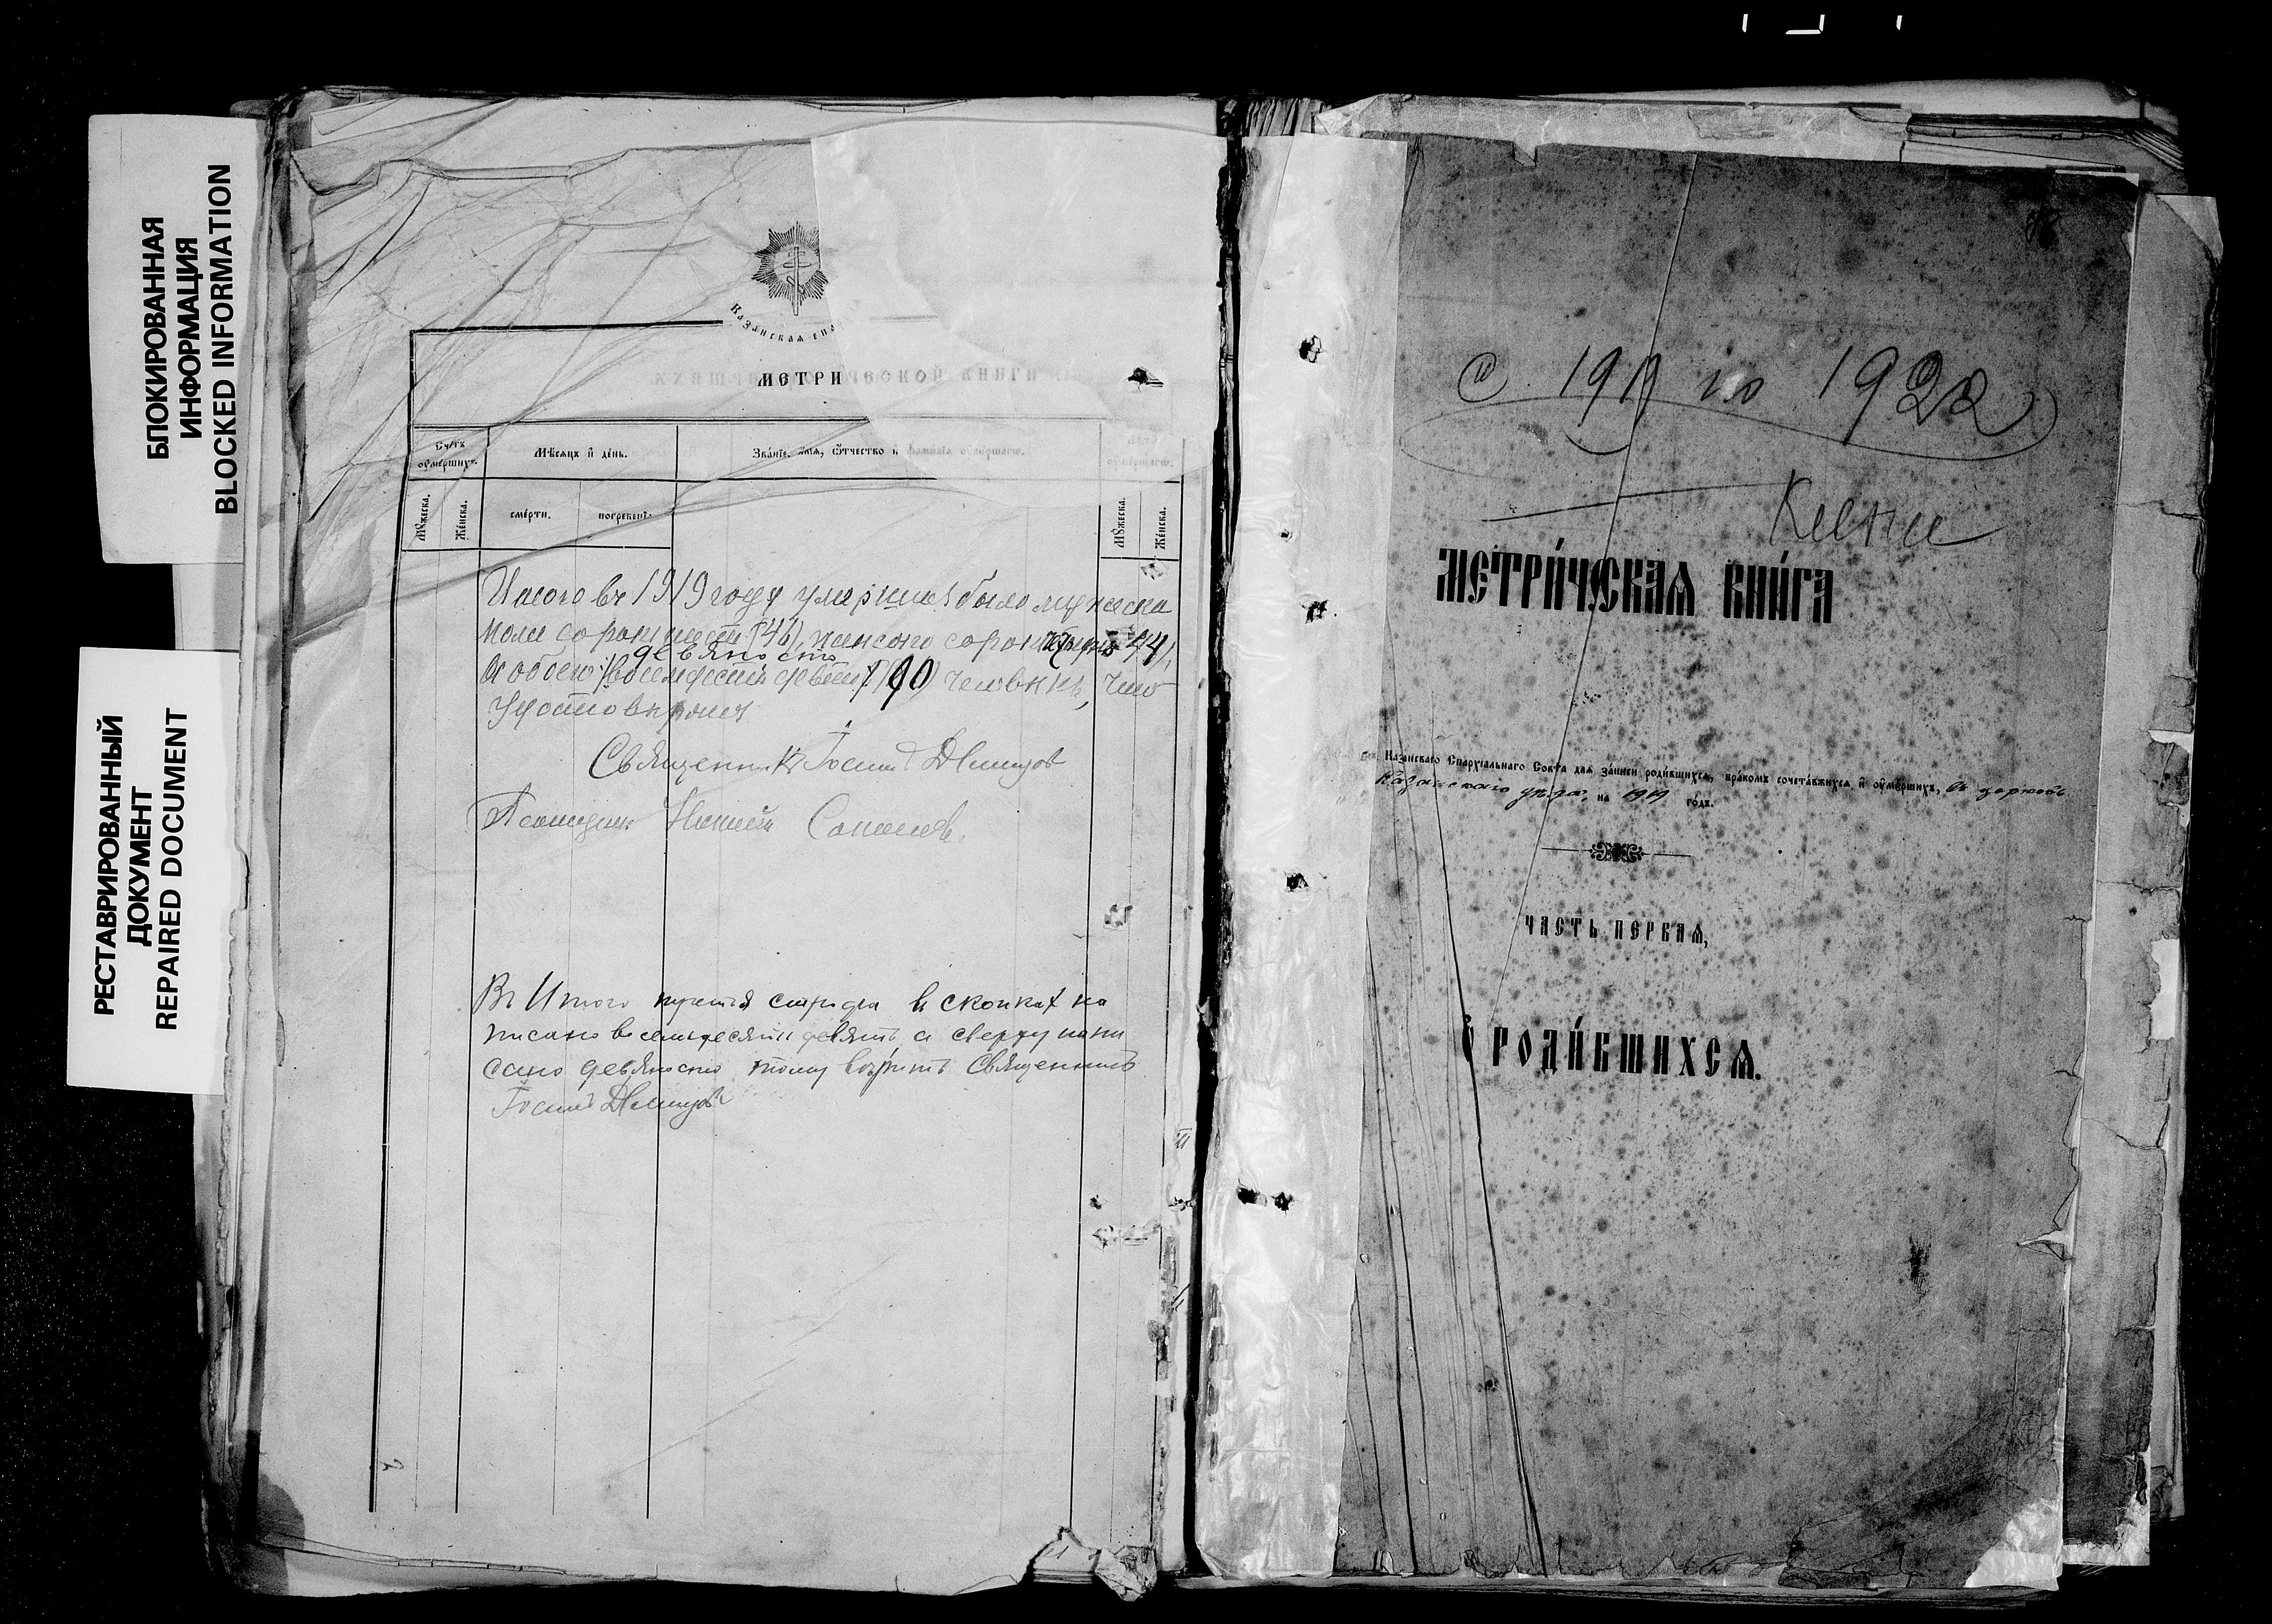 БЛОКИРОВАННАЯ
ИНФОРМАЦИЯ
BLOCKED INFORMATION
РЕСТАВРИРОВАННЫЙ
ДОКУМЕНТ
REPAIRED DOCUMENT
Казанская епа
МЕТРИЧЕСКОЙ КНИГИ
Счетъ оумершихъ.
Мѣсяцъ и день.
Званіе, имя, отчество и фамилія оумершагω.
оумершагω.
Мꙋжеска.
Женска.
смерти.
погребенія.
Мꙋжеска.
Женска.
Итого въ 1919 году умершихъ было мужеска
пола сорокъ шесть (46), женскаго сорокъ четыре (44),
девяносто
а обоего (восемьдесятъ девять) (90) человѣкъ, что
удостовѣряемъ
Священникъ Іосифъ
Псаломщикъ
Въ Итого третья строка въ скопках на
писано восемьдесятъ девять а сверху напи
сано девяносто тому вѣрить Священникъ
Іосифъ
с 1919 по 1922
МЕТРИ́ЧЕСКАѦ КНИ́ГА
Казанскаго Епархіальнаго Совѣта для записи родившихся, бракомъ сочетавшихся и оумершихъ, въ церковь
Казанскаго уѣзда, на 1919 годъ.
ЧАСТЬ ПЕРВАѦ,
Ѡ РОДИ́ВШИХСѦ.